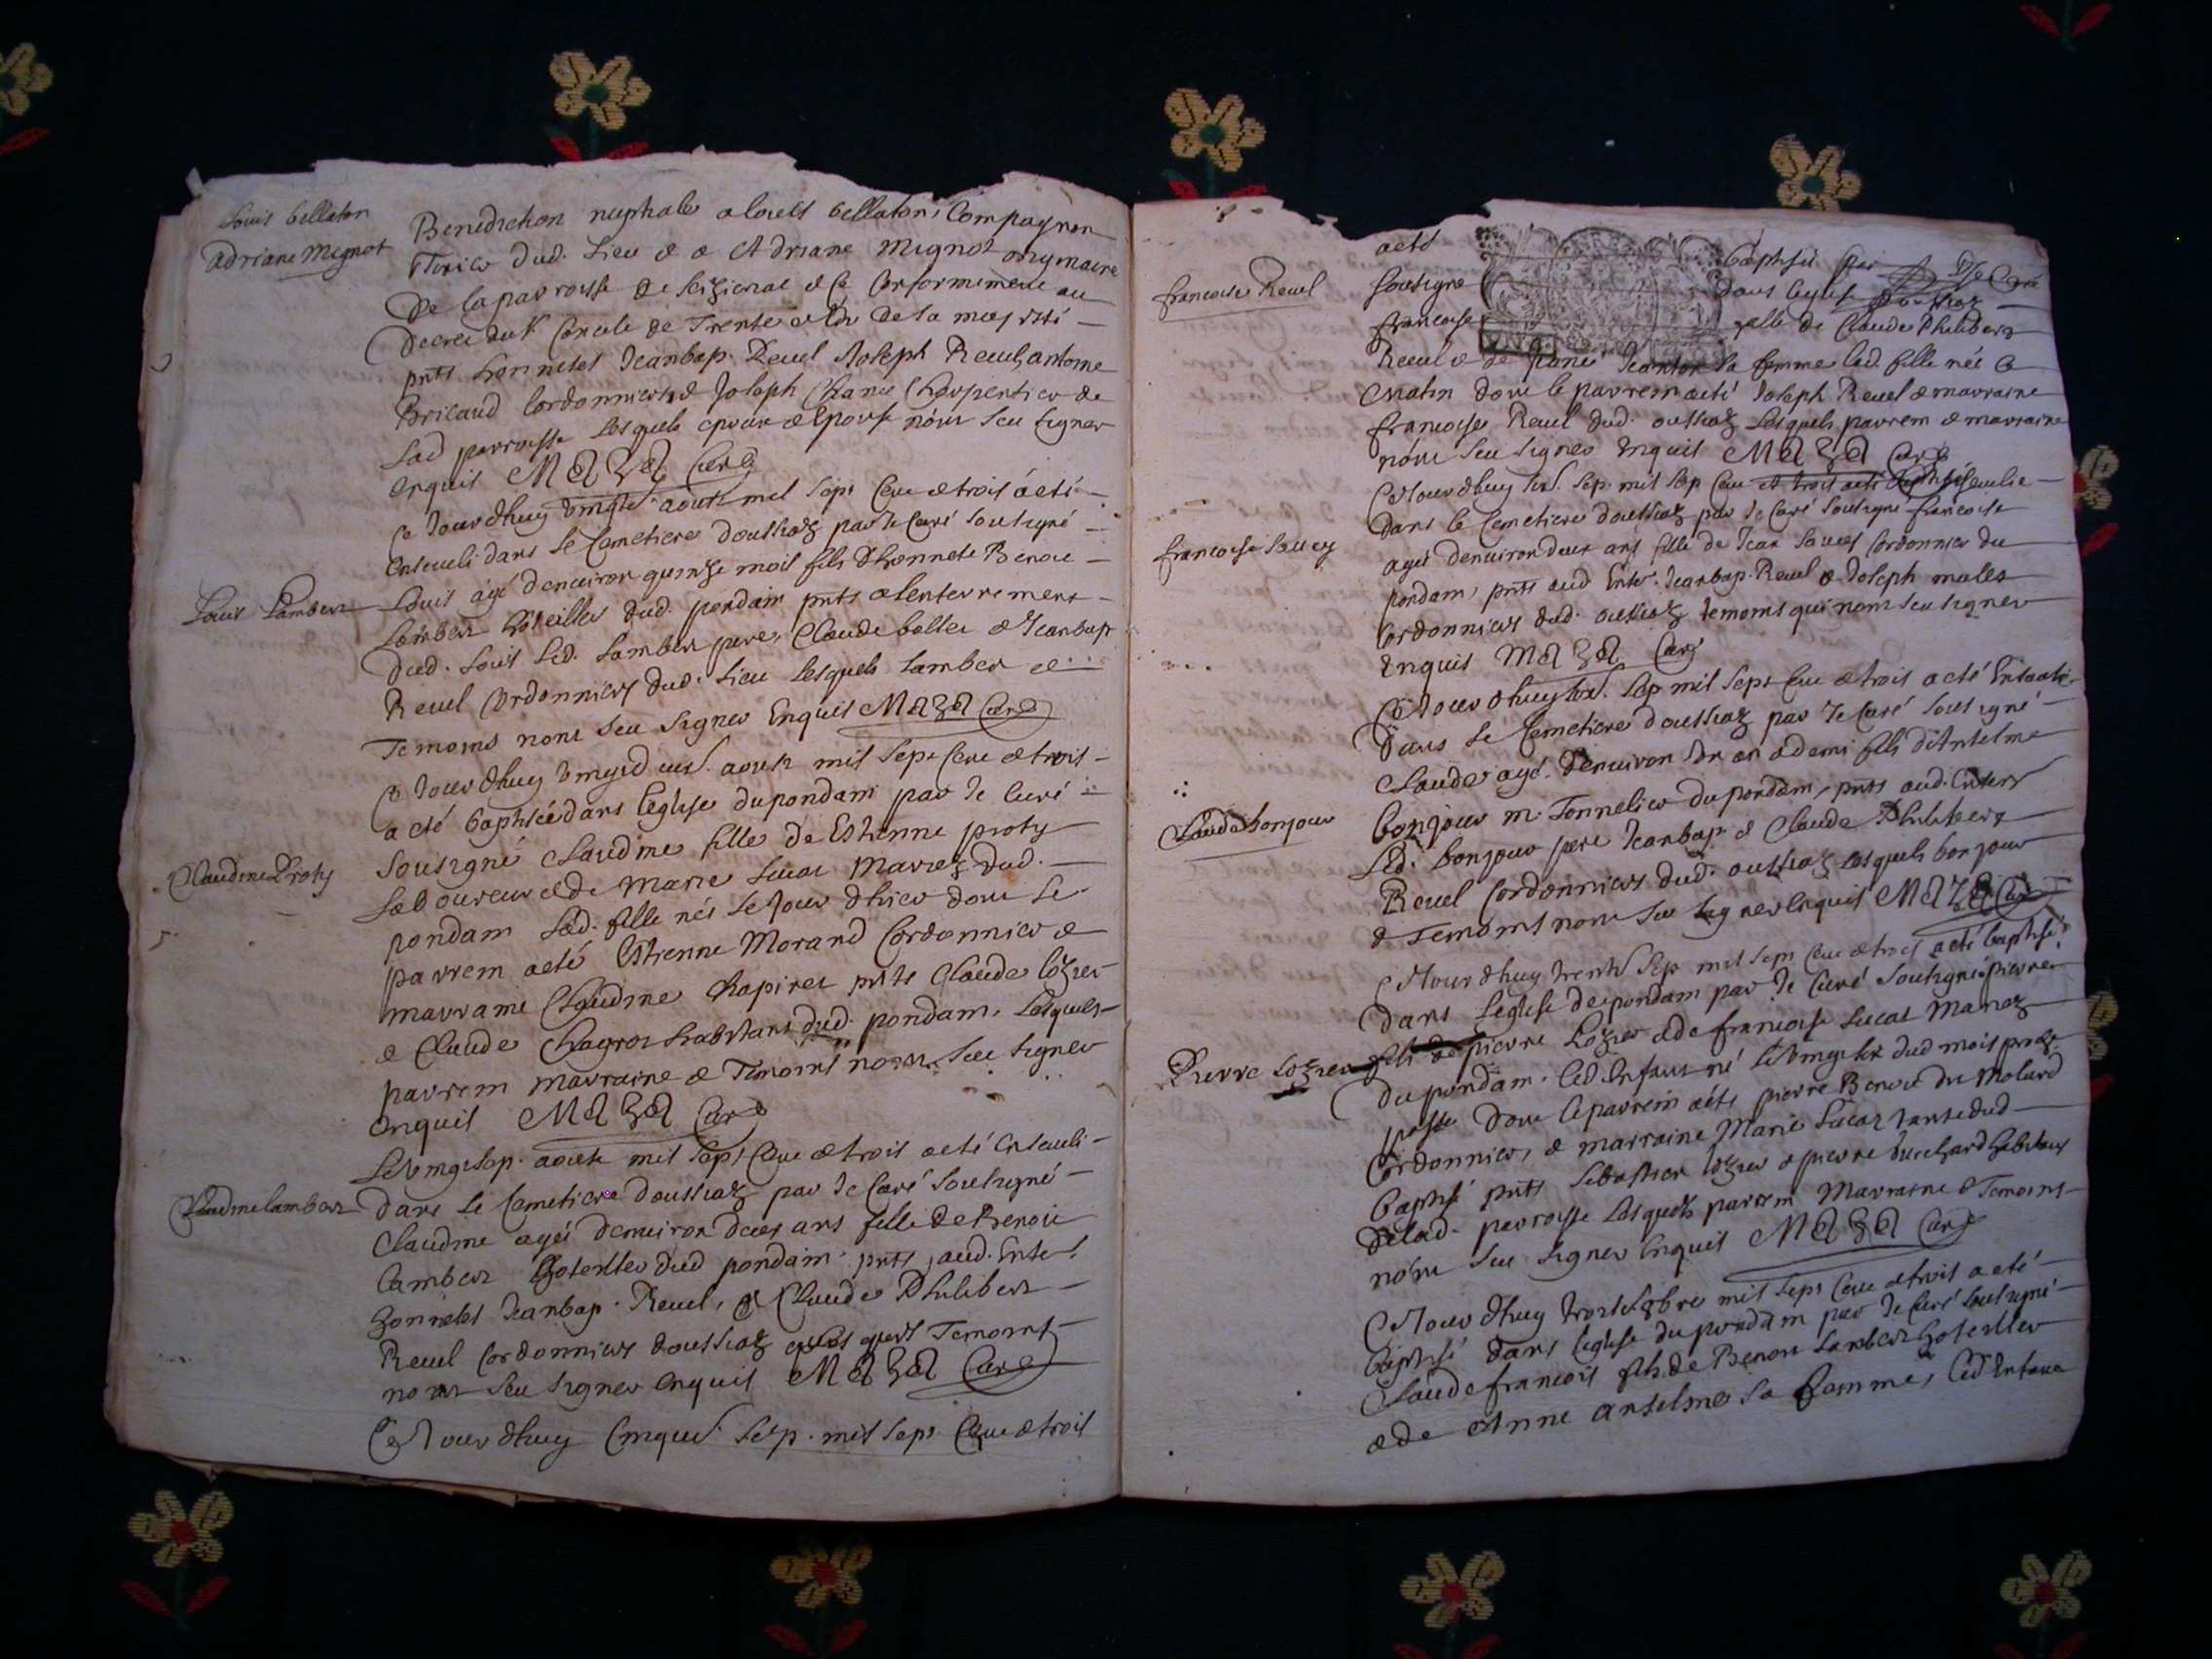 Louis bellaton
Adriane Mignot
Benediction nuptiale a Louis bellaton, Compagnon
dud. Lieu & a Adriane Mignot originaire
De la parroisse de & Ce Conformement au
Decret du St Concile de Trente & de Sa majesté
pnts honnetes Jeanbap. Reuel Joseph Reuel, antoine
Bricaud Cordonniers & Joseph Chane Charpentier de
Lad parroisse Lesquels epoux & Epouse n'ont sceu signer
enquis Maza Curé
Ce Jourdhuy aoust mil Sept Cent & trois a eté
Enseueli dans Le Cemetiere doussiaz par Je Curé soussigné
Louis Lambert
Louis agé denuiron quinze mois fils dhonnete Benoit
Lambert hotellier dud. pondain pnts a lenterrement
dud. Louis Led. Lambert pere, Claude bollet & Jeanbap
Reuel Cordonniers dud. Lieu Lesquels Lambert &
Temoins nont sceu signer Enquis Maza Curé
Ce Jourdhuy aoust mil Sept Cent & trois
a eté baptisée dans leglise du pondain par Je Curé
Claudine Proty
Soussigné Claudine fille de Estienne proty
Laboureur & de Marie Lucat Mariez dud.
pondain Lad. fille née Le Jour dhier dont Le
parrein a eté Estienne Morand Cordonnier &
marraine Claudine Chapiret pnts Claude lozier
& Claude Chagros habitans dud. pondain, Lesquels
parrein marraine & Temoins nont sceu signer
enquis Maza Curé
Le vingt Sep. aoust mil Sept Cent & trois a eté Enseueli
Claudine lambert
dans Le Cemetiere doussiaz par Je Curé Soussigné
Claudine agée denuiron deux ans fille de Benoit
Lambert hotellier dud pondain pnts aud. Enter.
honnetes Jeanbap. Reuel, & Claude Philibert
Reuel Cordonniers doussiaz Lesquels Temoins
nont sceu signer enquis Maza Curé
Ce Jourdhuy Sep. mil Sept Cent & trois
a eté baptisée par Je Curé
francoise Reuel
soussigné dans leglise
francoise fille de Claude Philibert
Reuel & de Jeanton Sa femme Lad. fille née Ce
Matin dont le parrein a eté Joseph Reuel & marraine
francoise Reuel dud. oussiaz Lesquels parrein & marraine
n'ont sceu signer Enquis Maza Curé
Ce Jourdhuy Sep. mil Sep Cent & trois a eté Enseuelie
dans le Cemetiere doussiaz par Je Curé Soussigné francoise
francoise Sauey
agée denuiron deux ans fille de Jean Cordonnier du
pondain, pnts aud Enter. Jeanbap. Reuel & Joseph
Cordonniers dud. oussiaz temoins qui nont sceu signer
Enquis Maza Curé
Ce Jourdhuy Sep mil Sept Cent & trois a eté
Dans Le Cemetiere doussiaz par Je Curé Soussigné
Claude agé denuiron Un an & demi fils dAntelme
Claude bonjour
bonjour m. Tonnelier du pondain, pnts aud. Enterr
Led. bonjour pere Jeanbap & Claude Philibert
Reuel Cordonniers dud. oussiaz Lesquels bonjour
& Temoins nont sceu signer Enquis Maza Curé
Ce Jourdhuy trente Sep mil Sept Cent & trois a eté baptisé
dans Leglise de pondain par Je Curé Soussigné pierre
Pierre Lozier
fils de pierre Lozier & de francoise Lucat Mariez
du pondain. Led Enfant né dud mois proche
passé Dont Le parrein a eté pierre Benoit du Molard
Cordonnier, & marraine Marie Lucat tante dud
baptisé pnts Sebastien lozier & pierre habitans
de Lad. parroisse Lesquels parrein Marraine & Temoins
n'ont sceu signer Enquis Maza Curé
Ce Jourdhuy mil Sept Cent & trois a eté
baptisé dans leglise du pondain par Je Curé Soussigné
Claude francois fils de Benoit Lambert hotellier
& de Anne antelme Sa femme, Led Enfant